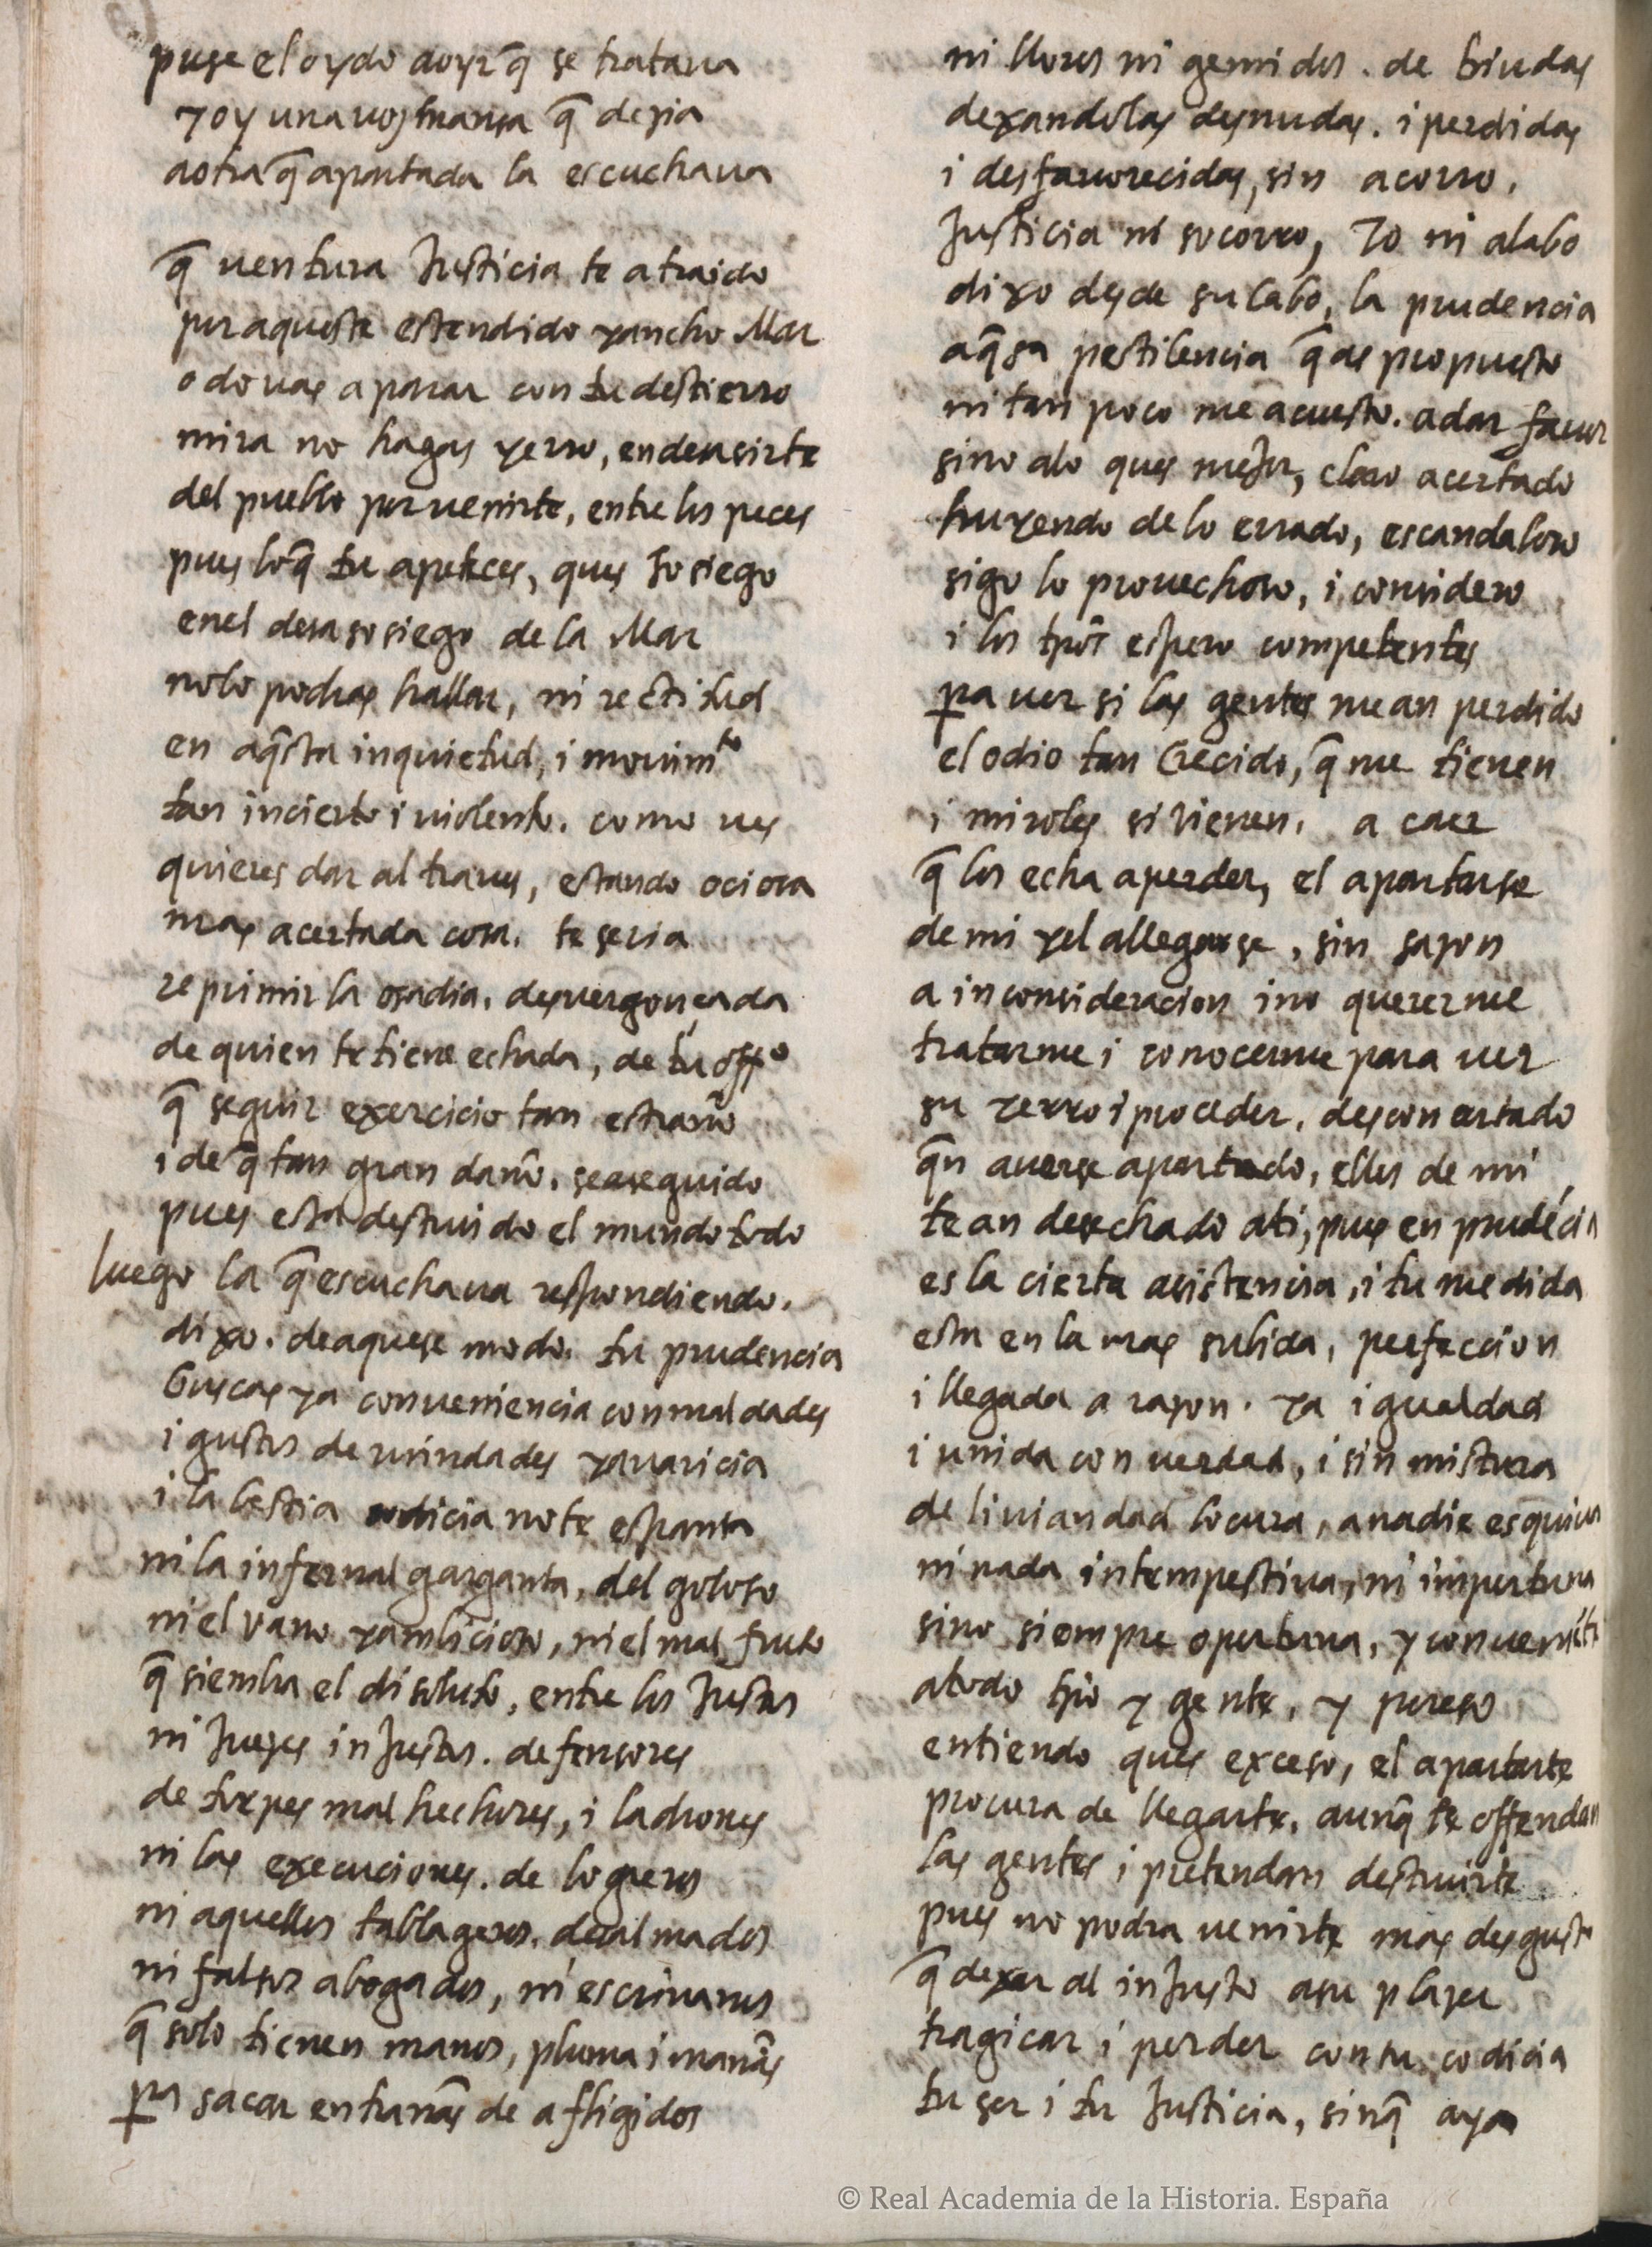 puse el oydo aoyr q̃ se trataua
yoy una uoz mansa q̃ dezia
aotra q̃ apartada la escuchaua
q̃ uentura Justicia te a traido
por aqueste estendido yancho Mar
o do uas a parar con tu destierro
mira no hagas yerro, en deusirte
del pueblo por uenirte, entre los peces
pues loq̃ tu apeteces, ques sosiego
enel desasosiego de la Mar
nolo podras hallar, ni rectitud
en aq̃sta inquietud, i mouimto
tan incierto i uiolento. como ues
quieres dar al traues, estando ociosa
mas acertada cosa. te seria
reprimir la osadia. desuergonçada
de quien te tiene echada, de tu offo
q̃ seguir exercicio tan estraño
i de q̃ tan gran daño. seaseguido
pues esta destruido el mundo todo
luego la q̃ escuchaua respondiendo.
dixo. deaquese modo. tu prudencia
buscas ya conueniencia con maldades
i gustas de ruindades yauaricia
i la bestia codicia note espanta
ni la infernal garganta, del goloso
niel vano yambicioso, niel mal fruto
q̃ siembra el disoluto, entre los Justos
ni Juezes inJustos. defensores
de torpes malhechores, i ladrones
ni las execuciones. de logreros
ni aquellos tablageros. desalmados
ni falsos abogados, ni escriuanos
q̃ solo tienen manos, pluma i mañas
pa sacar entrañas de afligidos
ni lloros ni gemidos. de biudas
dexandolas desnudas. i perdidas
i desfauorecidas, sin acorro.
Justicia ni socorro, Yo ni alabo
dixo desde su cabo, la prudencia
aq̃sa pestilencia q̃ as propuesto
ni tan poco me acuesto. adar fauor
sino alo ques meJor, claro acertado
huyendo de lo errado, escandaloso
sigo lo prouechoso, i considero
i los tpos espero competentes
pa uer si las gentes me an perdido
el odio tan Crecido, q̃ me tienen
i miroles si vienen. a caer
q̃ los echa aperder, el apartarse
de mi yel allegarse, sin sazon
a inconsideracion ino quererme
tratarme i conocerme para uer
su yerro i proceder. desconcertado
q̃n auerse apartado, ellos de mi
te an desechado ati, pues en prudẽcia
es la cierta asistencia, i tu medida
esta en la mas subida, perfeccion
i llegada a razon. ya igualdad
i unida con uerdad, i sin mistura
de liuiandad locura, anadie esquiua
ni nada intempestiua, ni importuna
sino siempre oportuna, y conueniẽte
atodo tpo y gente, y poreso
entiendo ques exceso, el apartarte
procura de llegarte. aunq̃ te offendan
las gentes i pretendan destruirte
pues no podra uenirte mas desgusto
q̃ dexar al inJusto asu plazer
tragicar i perder contu codicia
tu ser i tu Justicia, sinq̃ aya
© Real Academia de la Historia. España